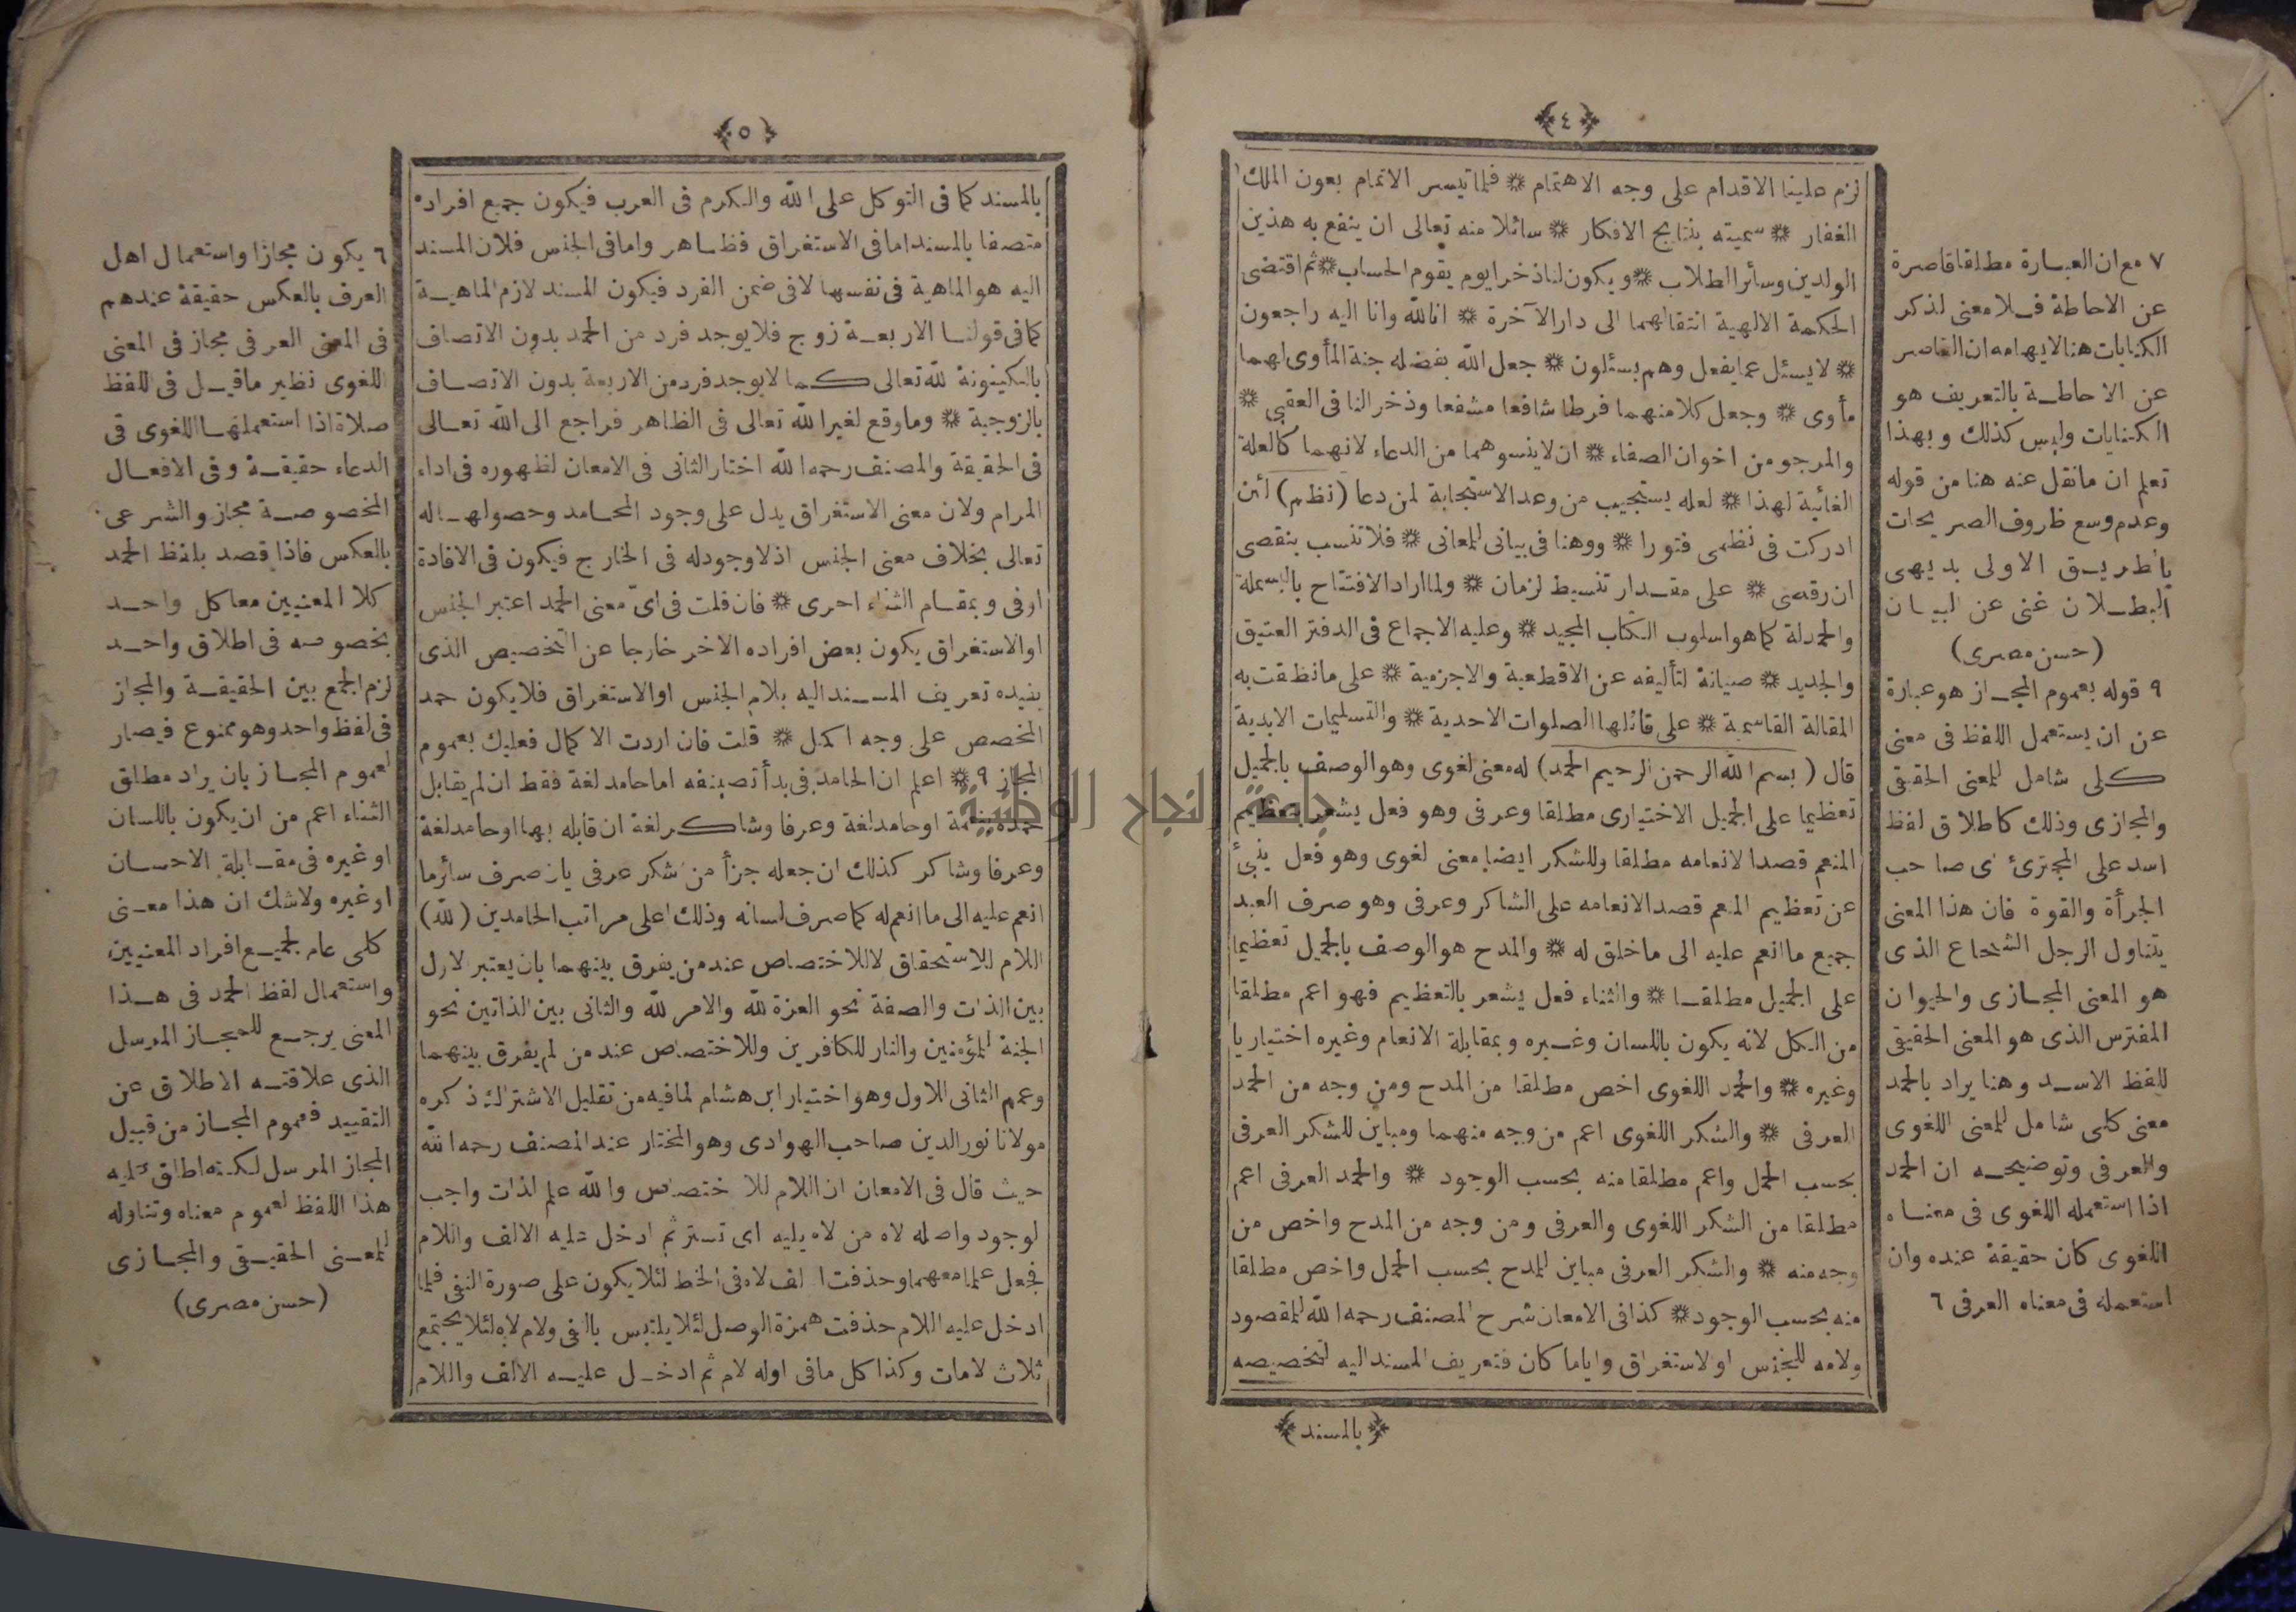 ﴿٤﴾
لزم علينا الاقدام على وجه الاهتمام * فلما تيسر الاتمام بعون الملك
الغفار * سميته بنتايج الافكار * سائلا منه تعالى ان ينفع به هذين
الولدين وسائر الطلاب * ويكون لنا ذخرا يوم يقوم الحساب * ثم اقتضى
الحكمة الالهية انتقالهما الى دار الآخرة * انا لله وانا اليه راجعون
* لا يسئل عما يفعل وهم يسئلون * جعل الله بفضله جنة المأوى لهما
مأوى * وجعل كلا منهما فرطا شافعا مشفعا وذخر النا فى العقبى *
والمرجو من اخوان الصفاء * ان لا ينسوهما من الدعاء لانهما كالعلة
الغائية لهذا * لعله يستجيب من وعد الاستجابة لمن دعا (نظم) لئن
ادركت فى نظمى فتورا * ووهنا فى بيانى للمعانى * فلا تنسب بنقصى
ان رقصى * على مقدار تنسيط لزمان * ولما اراد الافتتاح بالبسملة
والحمدلة كما هو اسلوب الكتاب المجيد * وعليه الاجماع فى الدفتر العتيق
والجديد * صيانة لتأليفه عن الاقطعية والاجزمية * على ما نطقت به
المقالة القاسمية * على قائلها الصلوات الاحدية * والتسليمات الابدية
قال (بسم الله الرحمن الرحيم الحمد) له معنى لغوى وهو الوصف بالجميل
تعظيما على الجميل الاختيارى مطلقا وعرفى وهو فعل يشعر بتعظيم
المنعم قصدا لانعامه مطلقا وللشكر ايضا معنى لغوى وهو فعل ينبئ
عن تعظيم المنعم قصد الانعامه على الشاكر وعرفى وهو صرف العبد
جميع ما انعم عليه الى ما خلق له * والمدح هو الوصف بالجميل تعظيما
على الجميل مطلقا * والثناء فعل يشعر بالتعظيم فهو اعم مطلقا
من الكل لانه يكون باللسان وغيره وبمقابلة الانعام وغيره اختياريا
وغيره * والحمد اللغوى اخص مطلقا من المدح ومن وجه من الحمد
العرفى * والشكر اللغوى اعم من وجه منهما ومباين للشكر العرفى
بحسب الحمل واعم مطلقا منه بحسب الوجود * والحمد العرفى اعم
مطلقا من الشكر اللغوى والعرفى ومن وجه من المدح واخص من
وجه منه * والشكر العرفى مباين للمدح بحسب الحمل واخص مطلقا
منه بحسب الوجود * كذا فى الامعان شرح المصنف رحمه الله للمقصود
ولامه للجنس او الاستغراق واياما كان فتعريف المسند اليه لتخصيصه
﴿بالمسند﴾
٧ مع ان العبارة مطلقا قاصرة
عن الاحاطة فلا معنى لذكر
الكنايات هنا لايهامه ان القاصر
عن الاحاطة بالتعريف هو
الكنايات وليس كذلك وبهذا
تعلم ان ما نقل عنه هنا من قوله
وعدم وسع ظروف الصريحات
بالطريق الاولى بديهى
البطلان غنى عن البيان
(حسن مصرى)
٩ قوله بعموم المجاز هو عبارة
عن ان يستعمل اللفظ فى معنى
كلى شامل للمعنى الحقيقى
والمجازى وذلك كاطلاق لفظ
اسد على المجترئ اى صاحب
الجرأة والقوة فان هذا المعنى
يتناول الرجل الشجاع الذى
هو المعنى المجازى والحيوان
المفترس الذى هو المعنى الحقيقى
للفظ الاسد وهنا يراد بالحمد
معنى كلى شامل للمعنى اللغوى
والعرفى وتوضيحه ان الحمد
اذا استعمله اللغوى فى معناه
اللغوى كان حقيقة عنده وان
استعمله فى معناه العرفى ٦
﴿٥﴾
بالمسند كما فى التوكل على الله والكرم فى العرب فيكون جميع افراده
متصفا بالمسند اما فى الاستغراق فظاهر واما فى الجنس فلان المسند
اليه هو الماهية فى نفسها لا فى ضمن الفرد فيكون المسند لازم الماهية
كما فى قولنا الاربعة زوج فلا يوجد فرد من الحمد بدون الاتصاف
بالكينونة لله تعالى كما لا يوجد فرد من الاربعة بدون الاتصاف
بالزوجية * وما وقع لغير الله تعالى فى الظاهر فراجع الى الله تعالى
فى الحقيقة والمصنف رحمه الله اختار الثانى فى الامعان لظهوره فى اداء
المرام ولان معنى الاستغراق يدل على وجود المحامد وحصولها له
تعالى بخلاف معنى الجنس اذ لا وجود له فى الخارج فيكون فى الافادة
اوفى وبمقام الثناء احرى * فان قلت فى اىّ معنى الحمد اعتبر الجنس
او الاستغراق يكون بعض افراده الاخر خارجا عن التخصيص الذى
يفيده تعريف المسند اليه بلام الجنس او الاستغراق فلا يكون حمد
المخصص على وجه اكمل * قلت فان اردت الاكمال فعليك بعموم
المجاز ٩ * اعلم ان الحامد فى بدأ تصنيفه اما حامد لغة فقط ان لم يقابل
حمده بنعمة او حامد لغة وعرفا وشاكر لغة ان قابله بها او حامد لغة
وعرفا وشاكر كذلك ان جعله جزأ من شكر عرفى بان صرف سائر ما
انعم عليه الى ما انعم له كما صرف لسانه وذلك اعلى مراتب الحامدين (لله)
اللام للاستحقاق لا للاختصاص عند من يفرق بينهما بان يعتبر الاول
بين الذات والصفة نحو العزة لله والامر لله والثانى بين الذاتين نحو
الجنة للمؤمنين والنار للكافرين وللاختصاص عند من لم يفرق بينهما
وعمم الثانى للاول وهو اختيار ابن هشام لما فيه من تقليل الاشتراك ذكره
مولانا نور الدين صاحب الهوادى وهو المختار عند المصنف رحمه الله
حيث قال فى الامعان ان اللام للاختصاص والله علم لذات واجب
لوجود واصله لاه من لاه يليه اى تستر ثم ادخل عليه الالف واللام
فجعل علما معهما وحذفت الف لاه فى الخط لئلا يكون على صورة النفى فلما
ادخل عليه اللام حذفت همزة الوصل لئلا يلتبس بالنفى ولام لاه لئلا يجتمع
ثلاث لامات وكذا كل ما فى اوله لام ثم ادخل عليه الالف واللام
٦ يكون مجازا واستعمال اهل
العرف بالعكس حقيقة عندهم
فى المعنى العرفى مجاز فى المعنى
اللغوى نظير ما قيل فى للفظ
صلاة اذا استعملها اللغوى فى
الدعاء حقيقة وفى الافعال
المخصوصة مجاز والشرعى
بالعكس فاذا قصد بلفظ الحمد
كلا المعنيين معا كل واحد
بخصوصه فى اطلاق واحد
لزم الجمع بين الحقيقة والمجاز
فى لفظ واحد وهو ممنوع فيصار
لعموم المجاز بان يراد مطلق
الثناء اعم من ان يكون باللسان
او غيره فى مقابلة الاحسان
او غيره ولا شك ان هذا معنى
كلى عام لجميع افراد المعنيين
واستعمال لفظ الحمد فى هذا
المعنى يرجع للمجاز المرسل
الذى علاقته الاطلاق عن
التقييد فعموم المجاز من قبيل
المجاز المرسل لكنه اطلق عليه
هذا اللفظ لعموم معناه وتناوله
للمعنى الحقيقى والمجازى
(حسن مصرى)
جامعة النجاح الوطنية